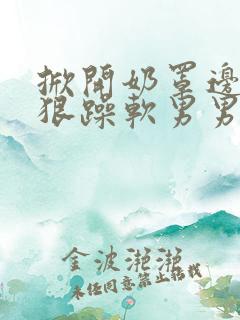 掀開奶罩邊
狠躁軟男男
金波滟滟
未经同意禁止转载